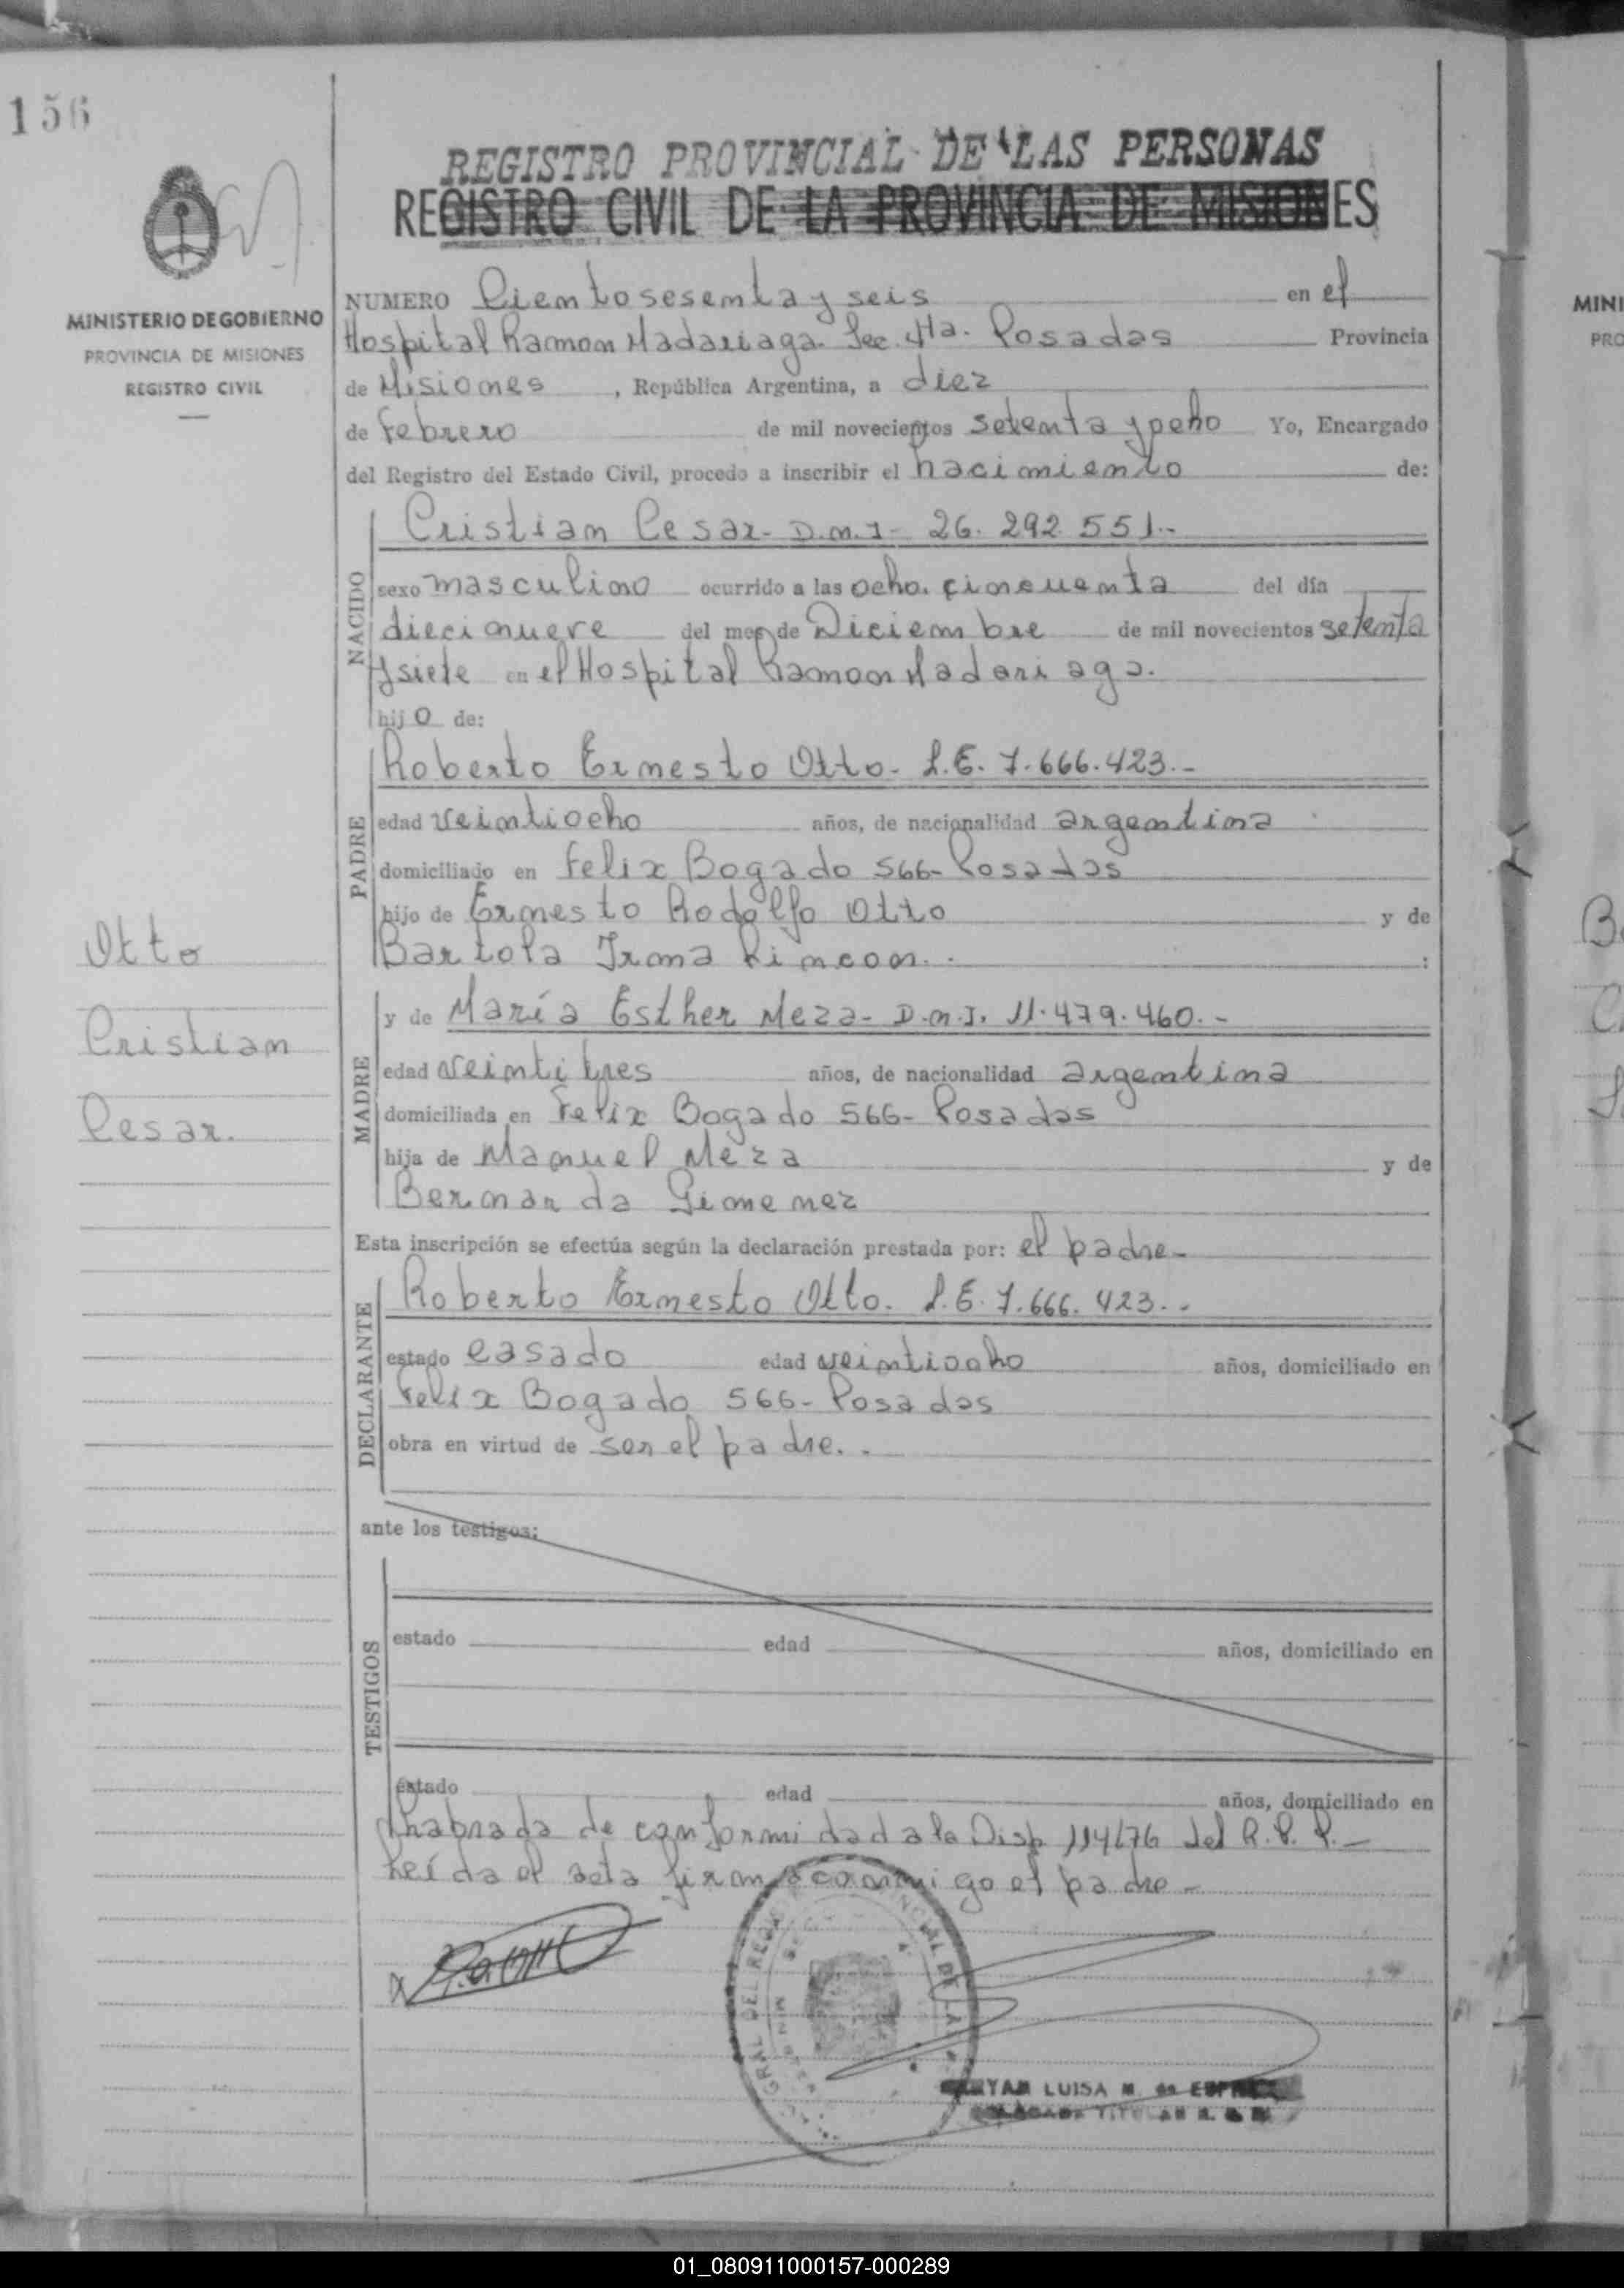 156
REGISTRO PROVINCIAL DE LAS PERSONAS
REGISTRO CIVIL DE LA PROVINCIA DE MISIONES
MINISTERIO DE GOBIERNO
PROVINCIA DE MISIONES
REGISTRO CIVIL
NUMERO Cientosesenta y seis en el
Hospital Ramon Madariaga. Sec. 4ta. Posadas Provincia
de Misiones, República Argentina, a diez
de Febrero de mil novecientos setenta y ocho Yo, Encargado
del Registro del Estado Civil, procedo a inscribir el nacimiento de:
NACIDO
Cristian Cesar- D.N.I- 26.292.551.-
sexo masculino ocurrido a las ocho. cincuenta del día
diecinueve del mes de Diciembre de mil novecientos setenta
y siete en el Hospital Ramon Madariaga.
hijo de:
PADRE
Roberto Ernesto Otto- L.E. 7.666.423.-
edad veintiocho años, de nacionalidad argentina
domiciliado en Felix Bogado 566- Posadas
hijo de Ernesto Rodolfo Otto y de
Bartola Irma Rincon.
Otto
Cristian
Cesar.
MADRE
y de María Esther Meza- D.N.I. 11.479.460.-
edad veintitres años, de nacionalidad argentina
domiciliada en Felix Bogado 566- Posadas
hija de Manuel Meza y de
Bernarda Gimenez
Esta inscripción se efectúa según la declaración prestada por: el padre-
DECLARANTE
Roberto Ernesto Otto. L.E. 7.666.423.-
estado casado edad veintiocho años, domiciliado en
Felix Bogado 566- Posadas
obra en virtud de ser el padre..
ante los testigos:
TESTIGOS
estado edad años, domiciliado en
estado edad años, domiciliado en
Labrada de conformidad a la Disp. 114/76 del R.P.P.-
Leída el acta firma conmigo el padre-
LUISA M. de
TITULAR
MINI
PRO
01_080911000157-000289